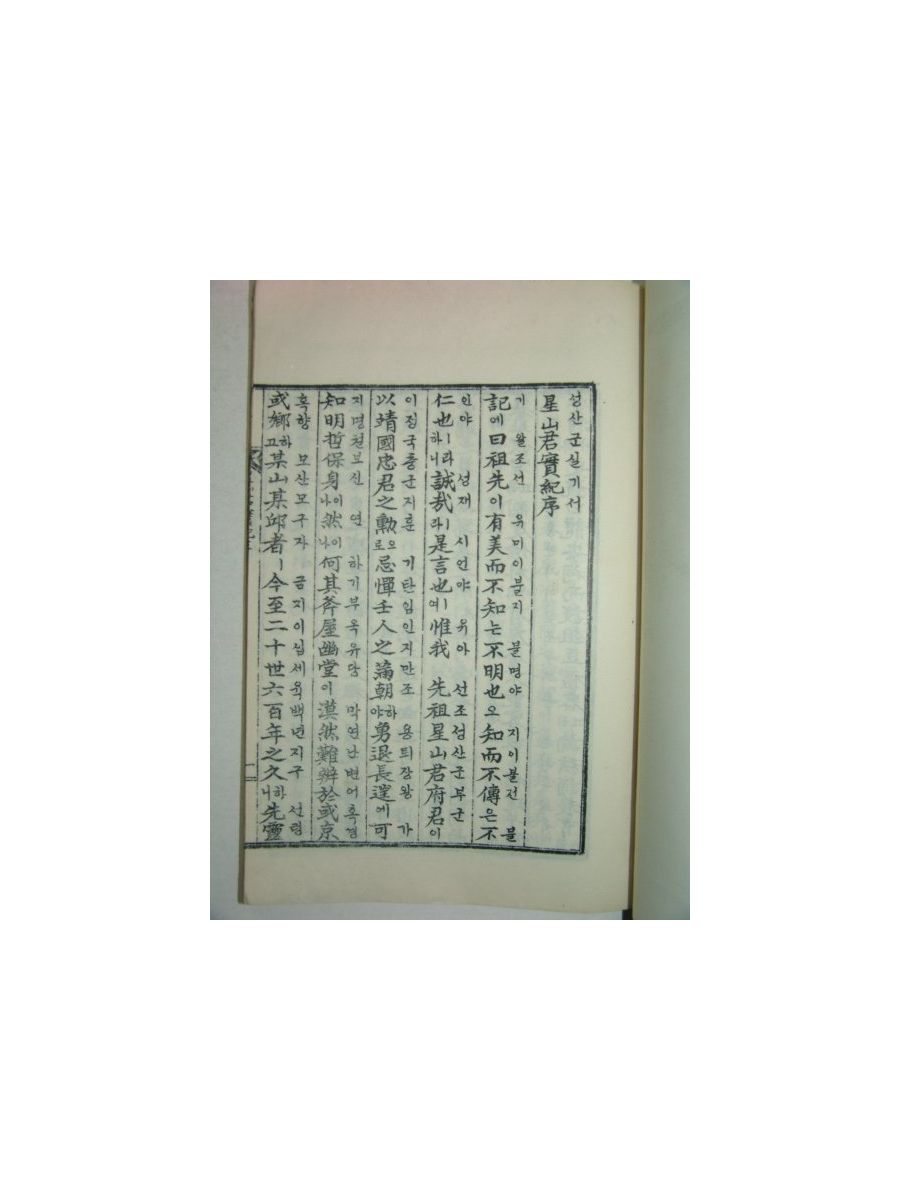 성산군실기서
星山君實紀序
기 왈조선 유미이불지 불명야 지이불전 불
記에曰祖先이有美而不知는不明也오知而不傳은不
인야 성재 시언야 유아 선조성산군부군
仁也ㅣ라하니誠哉라ㅣ是言也여ㅣ惟我 先祖星山君府君이
이정국충군지훈 기탄임인지만조 용퇴장왕 가
以靖國忠君之勳으로忌憚壬人之滿朝하야勇退長 에可
지명철보신 연 하기부옥유당 막연난변어혹경
知明哲保身이나然이나何其斧屋幽堂이漠然難辨於或京
혹향 모산모구자 금지이십세육백년지구 선령
或鄉하고某山某邱者ㅣ今至二十世六百年之久하니先靈
二